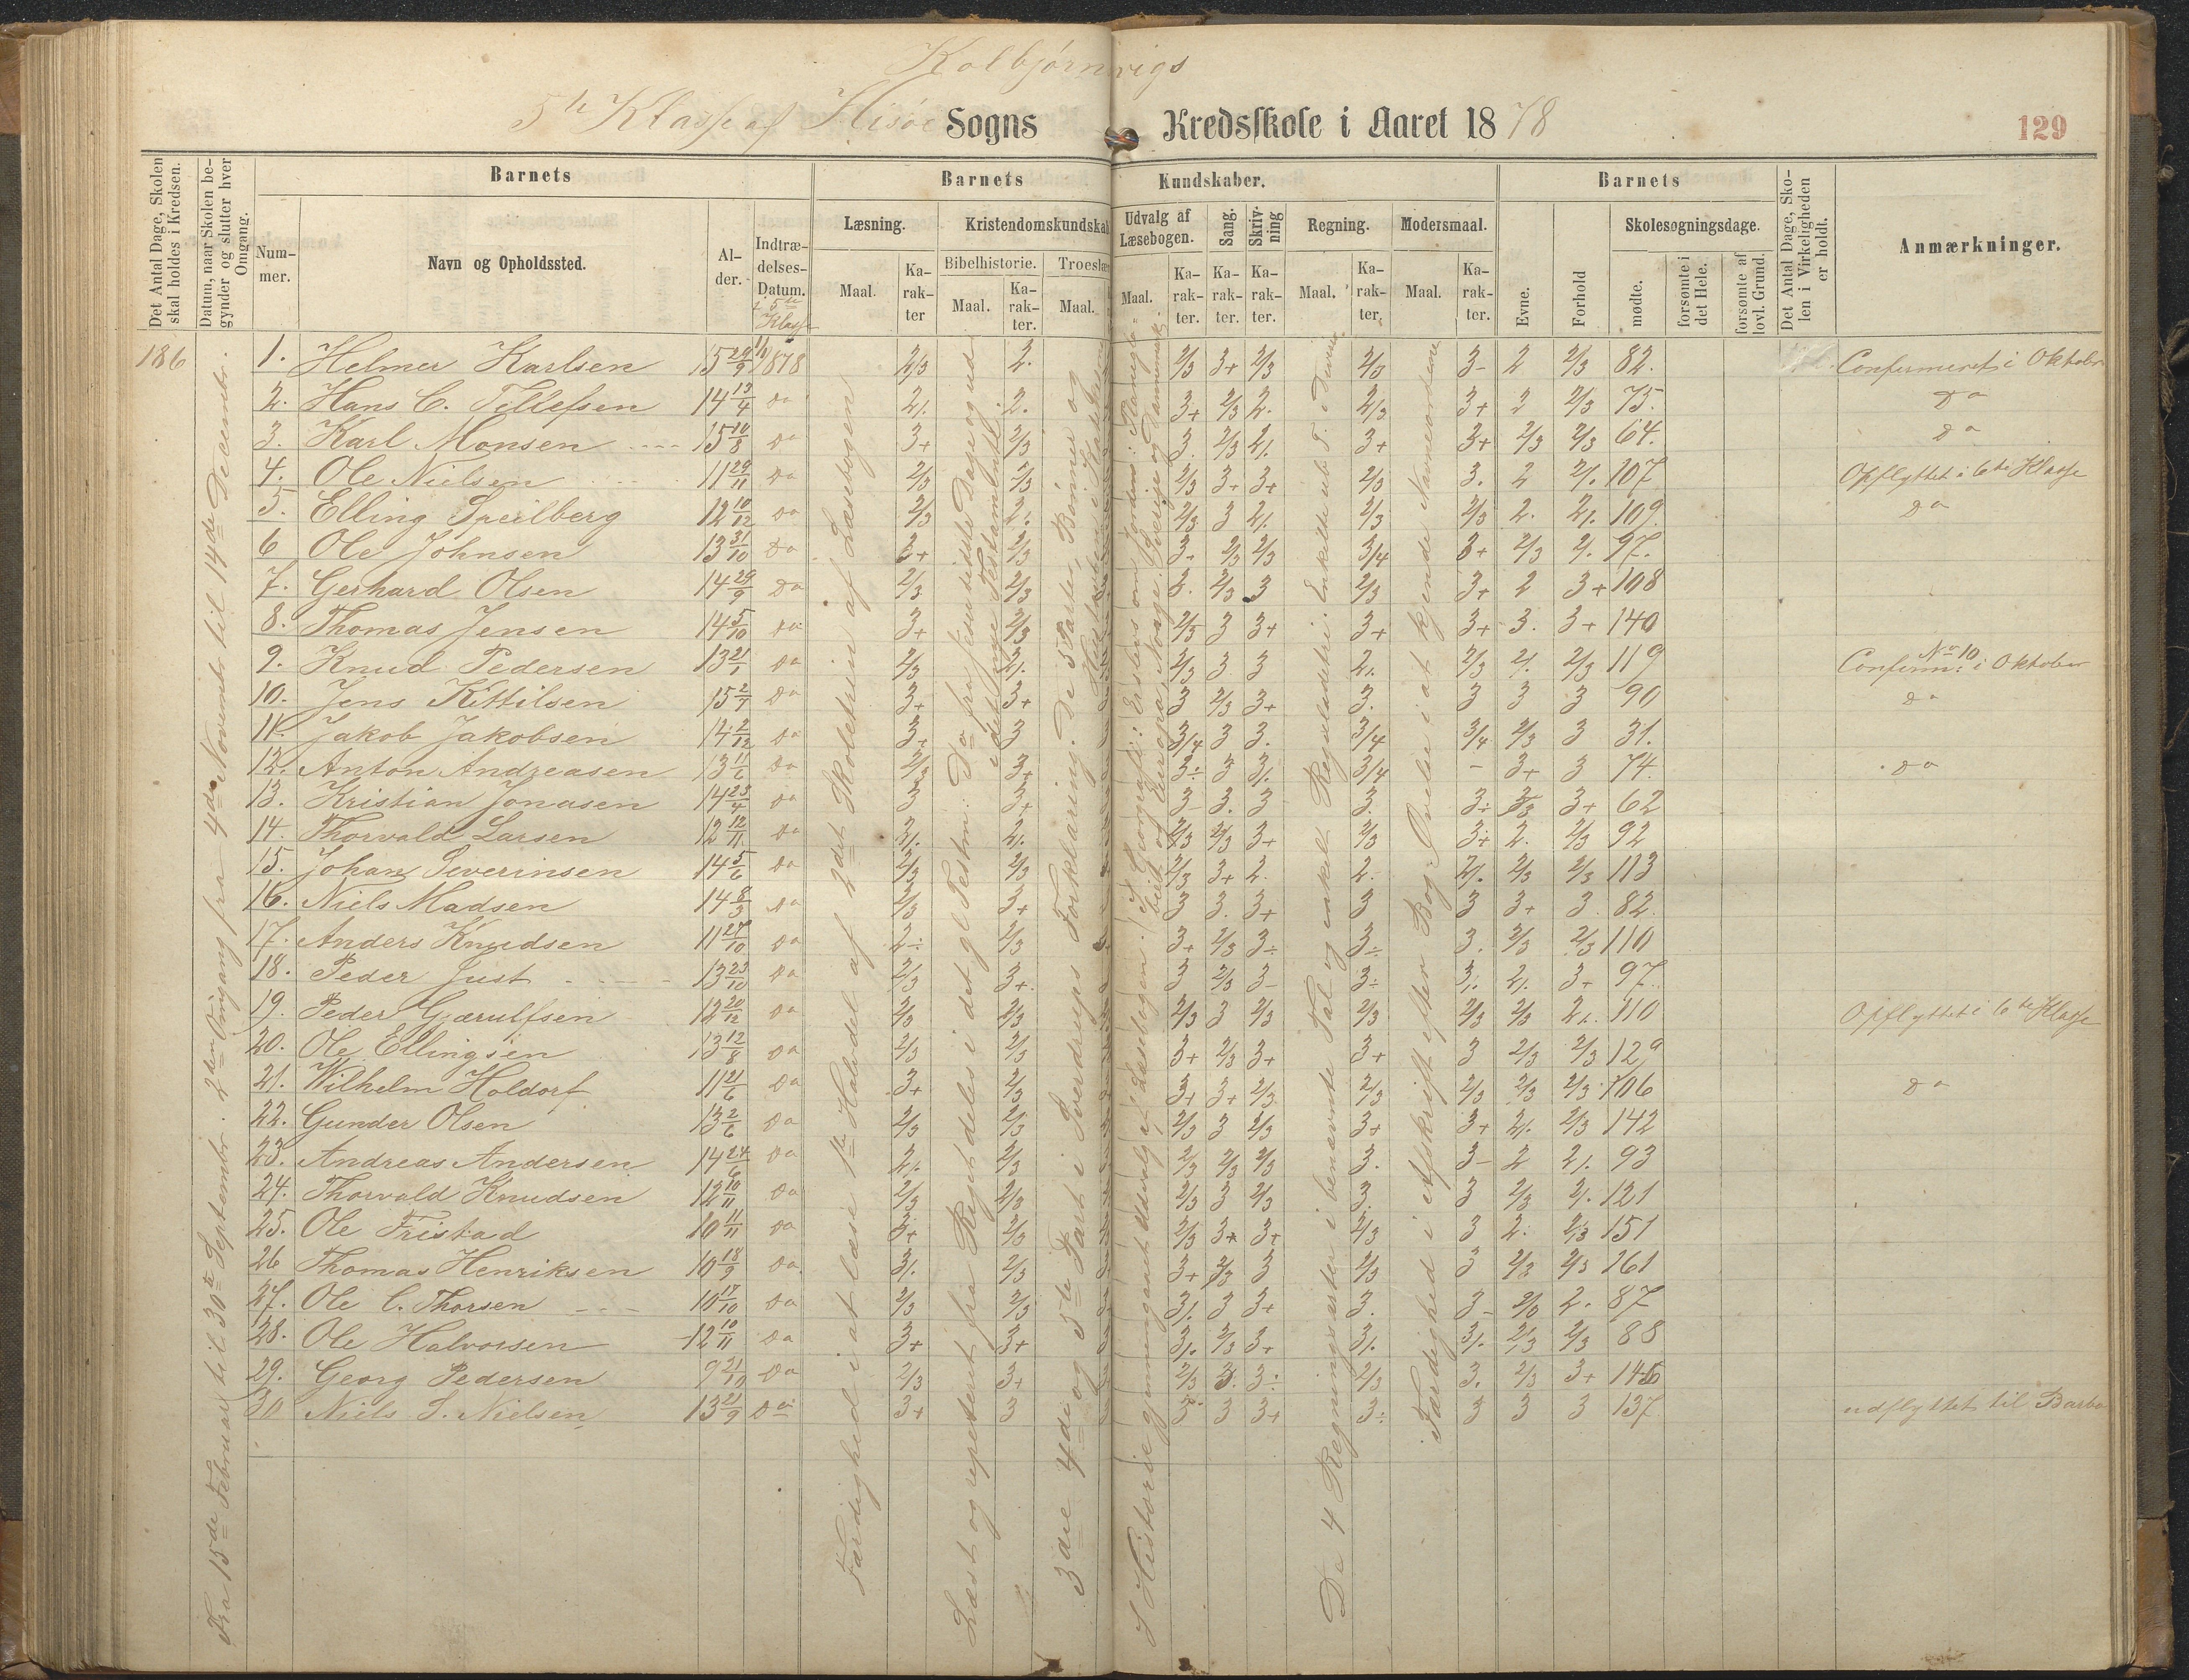 Kolbjørnsvigs
5te Klasse af Hisøe Sogns Kredsskole i Aaret 1878
129
Det Antal Dage, Skolen skal holdes i Kredsen.
Datum, naar Skolen begynder og slutter hver Omgang.
Barnets
Barnets Kundskaber.
Barnets
Det Antal Dage, Skolen i Virkeligheden er holdt.
Anmærkninger.
Nummer.
Navn og Opholdssted.
Alder.
Indtrædelses-Datum.
i 5te Klasse
Læsning.
Kristendomskundskab
Udvalg af Læsebogen.
Sang.
Skrivning
Regning.
Modersmaal.
Evne.
Forhold
Skolesøgningsdage.
Bibelhistorie.
Troeslære
Maal. Karakter
Maal. Karakter.
Maal.
Maal. Karakter. Karakter. Karakter.
Maal. Karakter.
Maal. Karakter.
mødte.
forsømte i det Hele.
forsømte af lovl. Grund.
186
Fra 15de Februar til 30te Septembr. 2den Omgang fra 4de Novembr til 14de Decembr.
Færdighed i at læse 1ste Halvdel af 2det Skoletrin af Læsebogen
De 4 Regningsarter i benævnte Tal og enkelt Reguladetri.
Færdighed i Afskrift efter Bog. Øvelse i at kjende Navneordene
1. Helmer Karlsen 15 29/9 1/1 1878 2/3 2. 2/3 3+ 2/3 2/3 3- 2 2/3 82. Confirmeret i Oktober
2. Hans C. Tellefsen 14 13/4 do 2/. 2. 3+ 2/3 2. 2/3 3+ 2 2/3 75. Do
3. Karl Monsen 15 10/8 do 3+ 2/3 3. 2/3 2/. 3+ 3+ 2/3 2/3 64. Do
4. Ole Nielsen 11 29/11 do 2/3 2/3 2/3 3+ 3+ 2/3 3. 2 2/. 107 Opflyttet i 6te Klasse
5. Elling Speilberg 12 10/12 do 2/3 2/. 2/3 3 2/. 2/3 2/3 2. 2/. 109. Do
6 Ole Johnsen 13 31/10 Do 3+ 2/3 3+ 2/3 2/3 3/4 3+ 2/3 2/. 97.
7. Gerhard Olsen 14 29/9 Do 2/3 2/3 3. 2/3 3 2/3 3+ 2 3+ 108
8. Thomas Jensen 14 5/10 do 3+ 2/3 2/3 3 3+ 3+ 3+ 3. 3+ 140
9. Knud Pedersen 13 21/1 do 2/3 2/. 2/3 3 3 2/. 2/3 2/. 2/3 119 No 10 Confirm: i Oktober
10. Jens Kittilsen 15 2/7 do 3+ 3+ 3 2/3 3+ 3. 3 3 3 90 Do
11. Jakob Jakobsen 14 2/12 do 3+ 3 3/4 3 3. 3/4 3/4 2/3 3 31.
12. Anton Andreasen 13 11/6 do 2/3 3+ 3÷ 3 3/. 3/4 - 3+ 3 74. Do
13. Kristian Jonasen 14 23/4 do 3 3+ 3- 3. 3 3. 3÷ 3/3 3+ 62
14. Thorvald Larsen 12 12/11 do 2/. 2/. 2/3 2/3 3+ 2/3 3+ 2. 2/3 92
15. Johan Severinsen 14 5/6 do 2/3 2/3 2/3 3+ 2. 2. 2/. 2/3 2/3 113
16. Niels Madsen 14 8/3 do 2/3 3+ 3 3. 3+ 3 3 3+ 3. 82.
17. Anders Knudsen 11 27/10 do 2÷ 2/3 3+ 2/3 3÷ 3÷ 3. 2/3 2/3 110
18. Peder Just 13 23/10 do 2/3 3+ 3 2/3 3- 3÷ 3/. 2/. 3+ 97.
19. Peder Gjærulfsen 12 20/12 do 2/3 2/3 2/3 3 2/3 2/3 2/3 2/3 2/. 110 Opflyttet i 6te Klasse
20. Ole Ellingsen 13 12/8 do 2/3 2/3 3+ 2/3 3+ 3+ 3 2/3 2/3 129
21. Wilhelm Holdorf 11 21/6 do 3+ 2/3 3+ 3+ 2/3 2/3 2/3 2/3 2/3 106 Do
22. Gunder Olsen 13 2/6 do 2/3 2/3 2/3 3 2/3 3+ 3+ 2/. 2/3 142
23. Andreas Andersen 14 24/6 do 2/. 2/3 2/3 2/3 2/3 3. 3- 2 2/. 93
24. Thorvald Knudsen 12 10/11 do 2/3 2/3 2/3 3 2/3 3. 3 2/3 2/. 121
25. Ole Fristad 10 11/11 do 3+ 2/3 2/3 3+ 3+ 2/3 3 2. 2/3 151
26 Thomas Henriksen 10 18/9 do. 3/. 2/3 3+ 3/3 3 2/3 3 2/3 2/3 161
27. Ole C. Thorsen 10 17/10 do 2/3 2/3 3/. 3 3+ 3. 3- 2/3 2. 87
28. Ole Halvorsen 12 10/11 do 3+ 3+ 3/. 2/3 3+ 3/. 3/. 2/3 2/3 88
29. Georg Pedersen 9 21/10 do 2/3 3+ 2/3 3. 3÷ 2/3 3. 2/3 3+ 146
30 Niels S. Nielsen 13 21/9 do 3+ 3 3 3 3+ 3÷ 3 3 3 137. udflyttet til Barbo